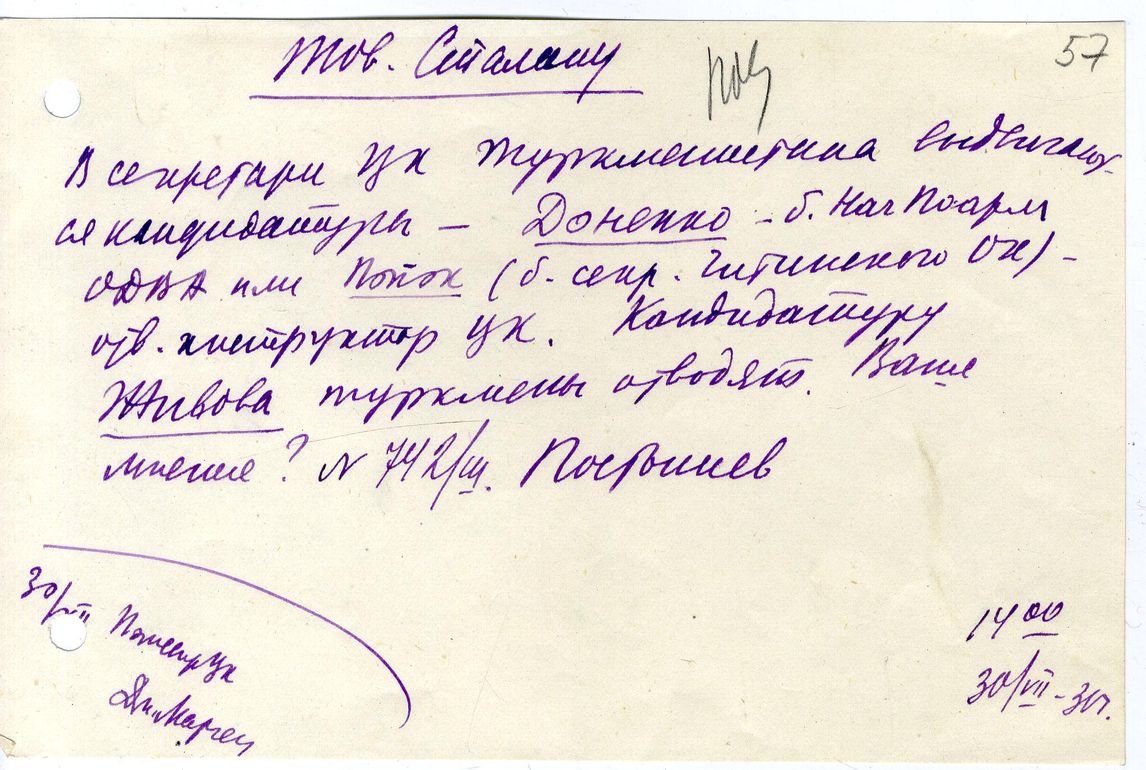 57
Тов. Сталину
В секретари ЦК Туркменистана выдвигают-
ся кандидатуры – Доненко – б. НачПоарм
ОДВА или Попок (б. секр. Читинского ОК) –
отв. инструктор ЦК. Кандидатуру
Живова туркмены отводят. Ваше
мнение? N 742/ш. Постышев
30/VII
Помсекр ЦК
1400
30/VII – 30г.